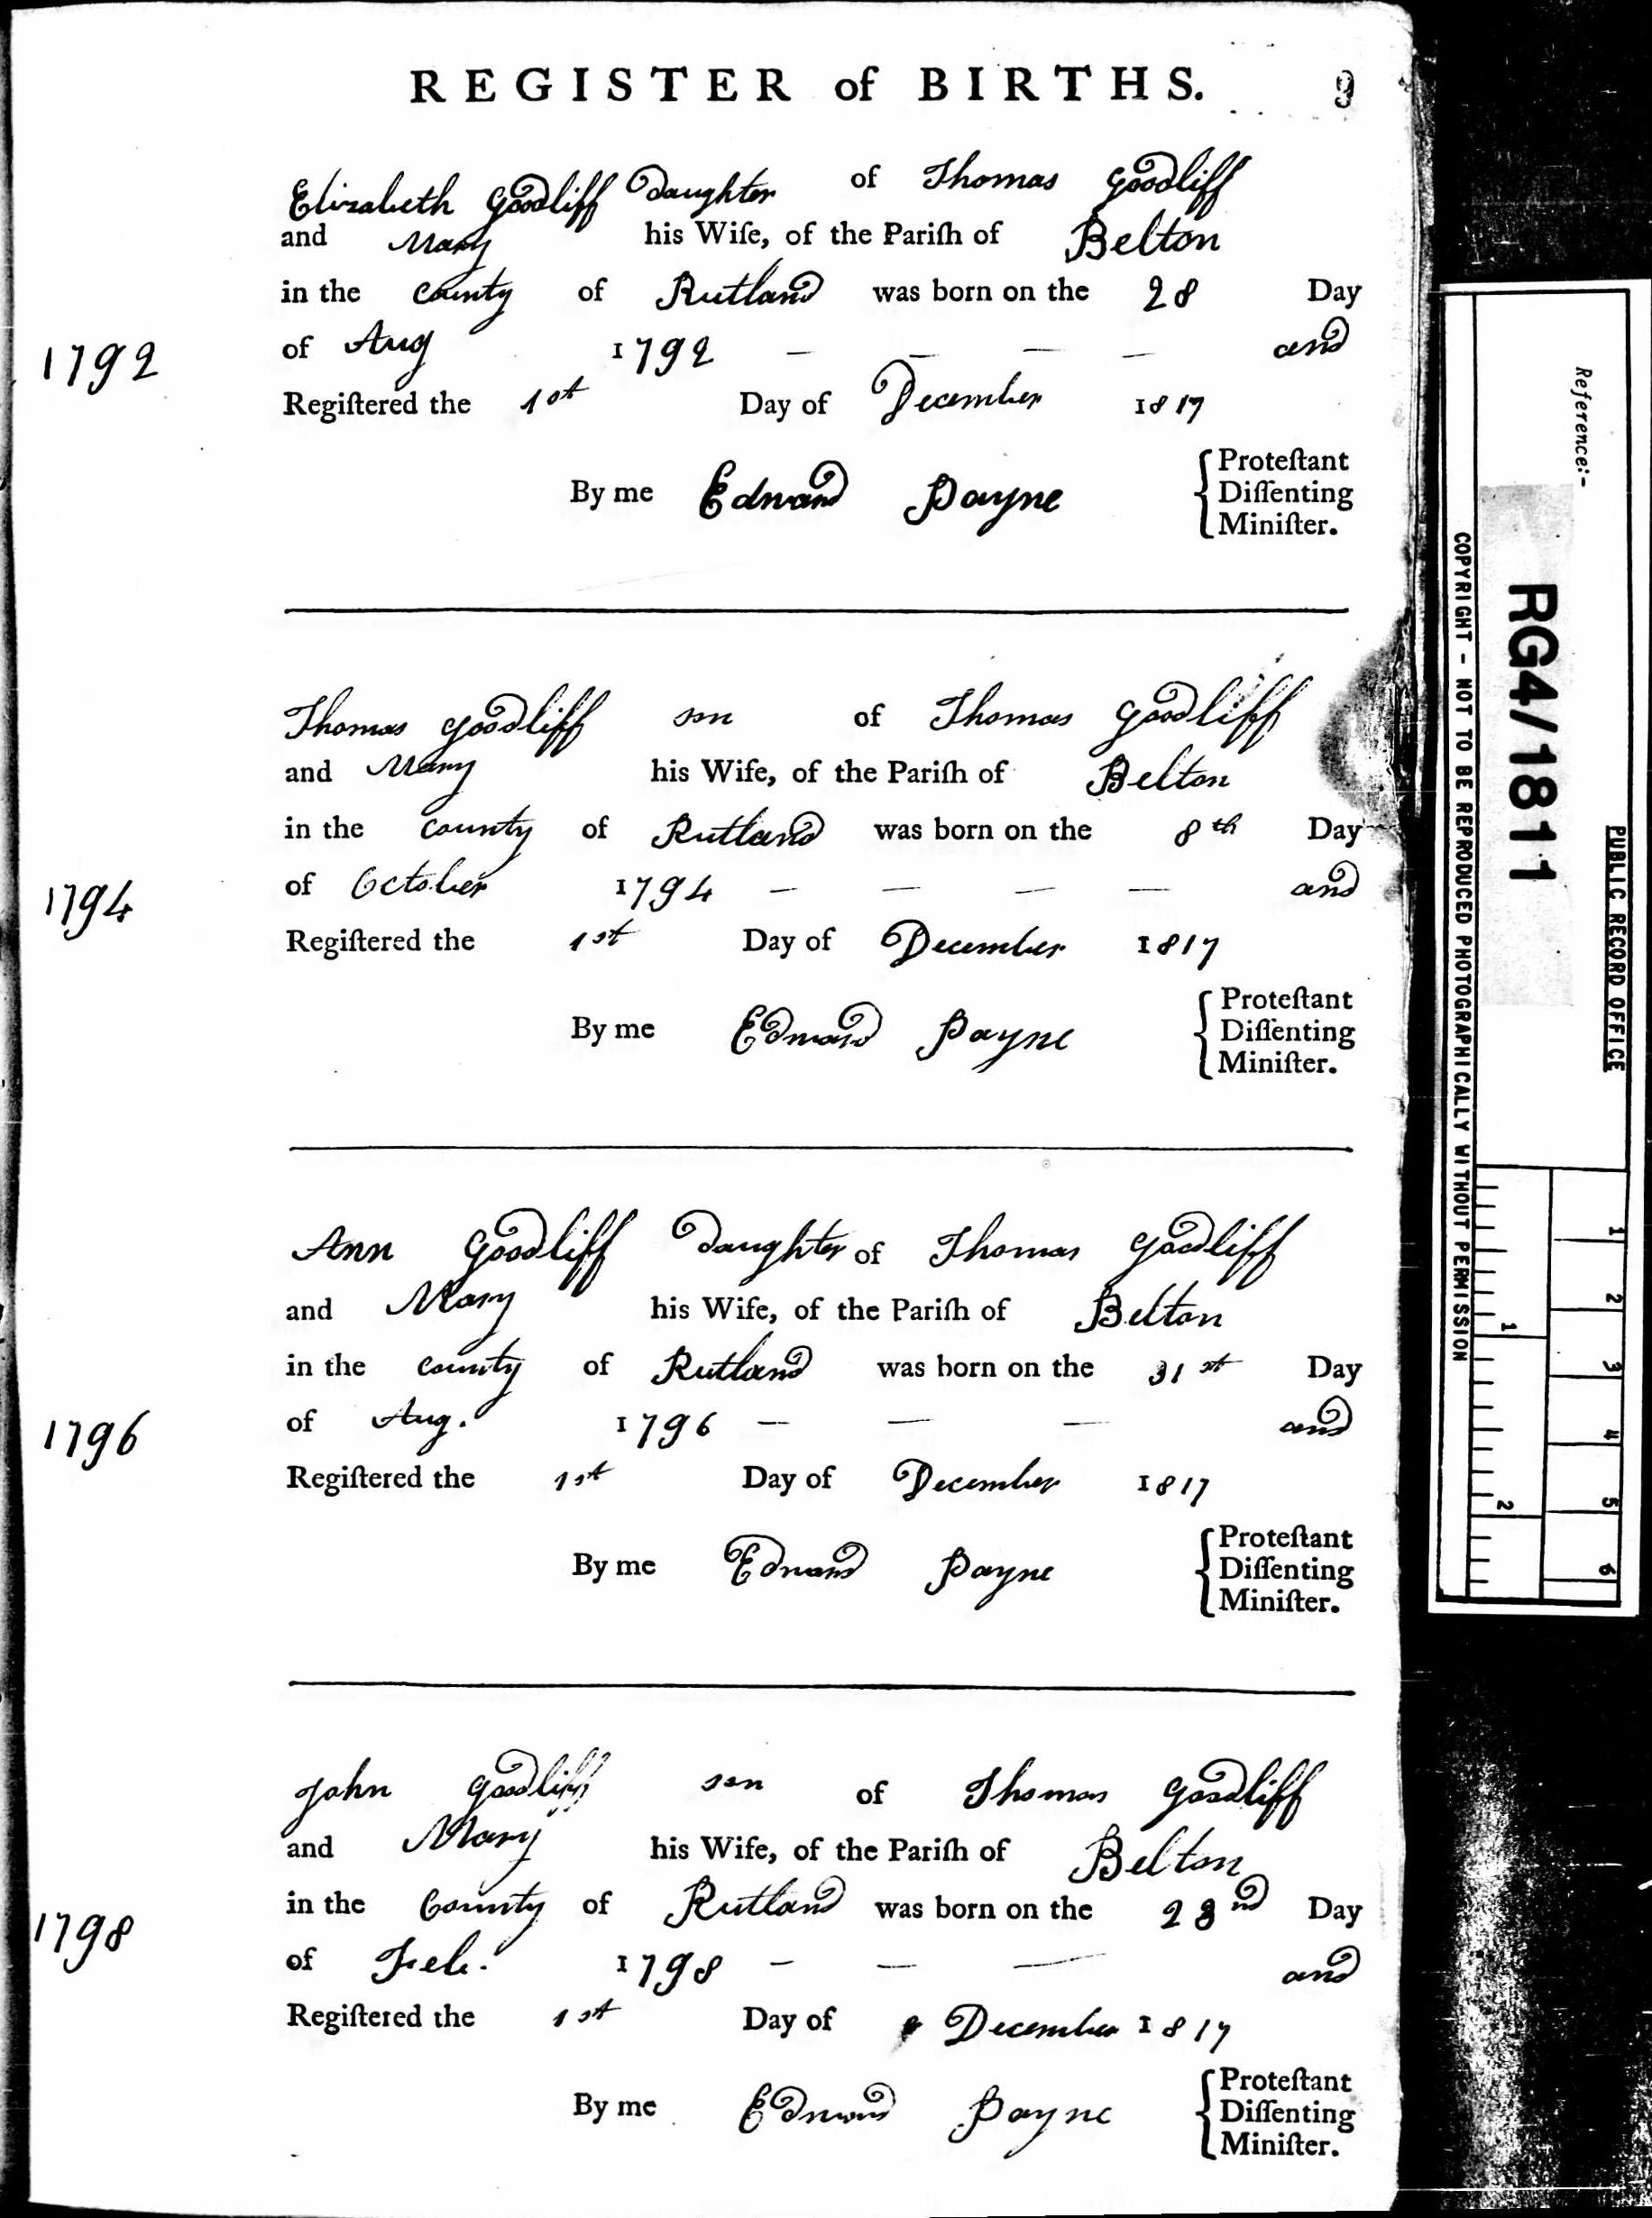 REGISTER of BIRTHS. 9
Elizabeth Goodliff Daughter of Thomas Goodliff
and Mary his Wife, of the Pariſh of Belton
in the County of Rutland was born on the 28 Day
1792 of Aug 1792 — — — — and
Regiſtered the 1st Day of December 1817
By me Edward Payne { Proteſtant
Diſſenting
Miniſter.
Thomas Goodliff son of Thomas Goodliff
and Mary his Wife, of the Pariſh of Belton
in the County of Rutland was born on the 8th Day
1794 of October 1794 — — — — and
Regiſtered the 1st Day of December 1817
By me Edward Payne { Proteſtant
Diſſenting
Miniſter.
Ann Goodliff Daughter of Thomas Goodliff
and Mary his Wife, of the Pariſh of Belton
in the County of Rutland was born on the 31st Day
1796 of Aug. 1796 — — — and
Regiſtered the 1st Day of December 1817
By me Edward Payne { Proteſtant
Diſſenting
Miniſter.
John Goodliff son of Thomas Goodliff
and Mary his Wife, of the Pariſh of Belton
in the County of Rutland was born on the nd Day
1798 of Feb. 1798 — — — and
Regiſtered the 1st Day of December 1817
By me Edward Payne { Proteſtant
Diſſenting
Miniſter.
PUBLIC RECORD OFFICE
1 2 3 4 5 6
Reference:-
RG4/1811
1 2
COPYRIGHT - NOT TO BE REPRODUCED PHOTOGRAPHICALLY WITHOUT PERMISSION